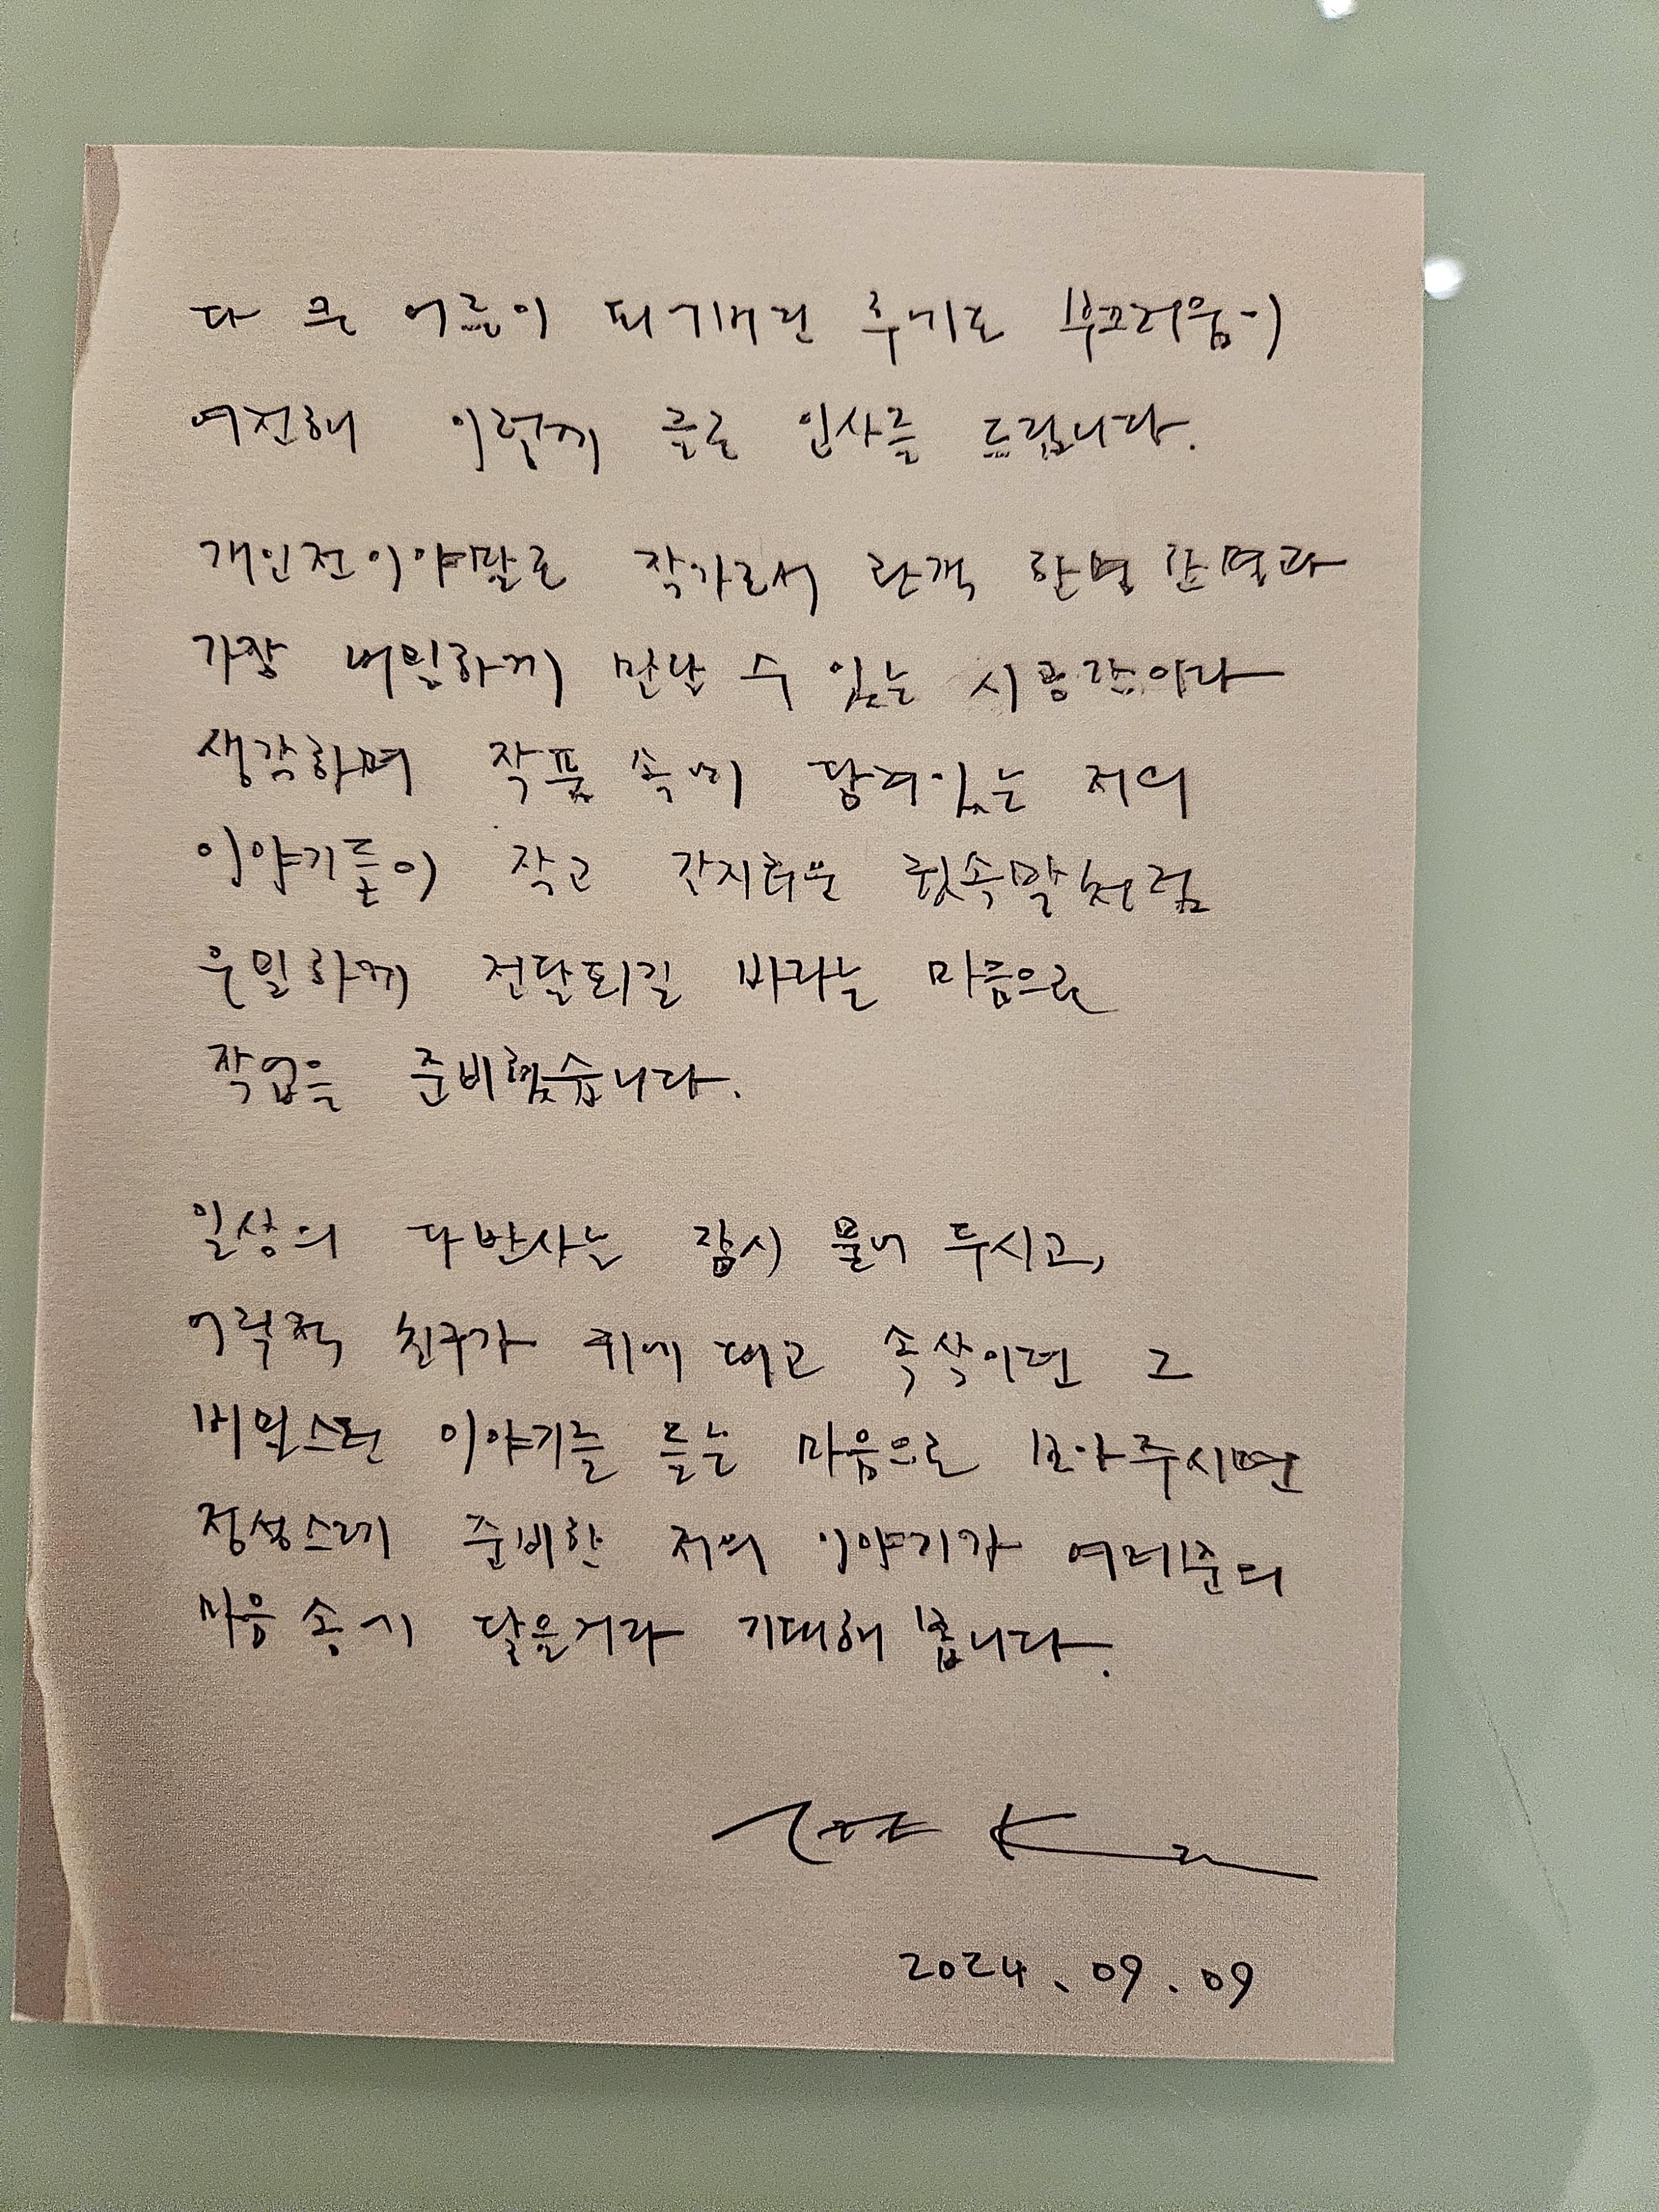 다 큰 어른이 되기버린 후에도 부끄러움이
여전해 이렇게 글로 인사를 드립니다.
개인전이야말로 작가로서 관객 한명 한명과
가장 내밀하게 만날 수 있는 시공간이라
생각하며 작품 속에 담겨있는 저의
이야기들이 작고 간지러운 귓속말처럼
은밀하게 전달되길 바라는 마음으로
작업을 준비했습니다.
일상의 다반사는 잠시 물러 두시고,
어릴적 친구가 귀에 대고 속삭이던 그
비밀스런 이야기를 듣는 마음으로 보아주시면
정성스레 준비한 저의 이야기가 여러분의
마음 속에 닿을거라 기대해 봅니다.
2024.09.09